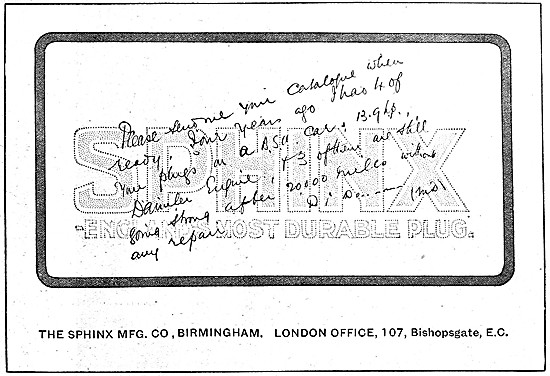 SPHINX
-ENGLAND'S MOST DURABLE PLUG.
Please send me your Catalogue when
ready. Four years ago I had 4 of
your plugs on a B.S.A. Car, 13.9 h.p.,
Daimler Engine, & 3 of them are still
going strong after 20000 miles without
any repair. D. De------ (MD)
THE SPHINX MFG. CO, BIRMINGHAM. LONDON OFFICE, 107, Bishopsgate, E.C.